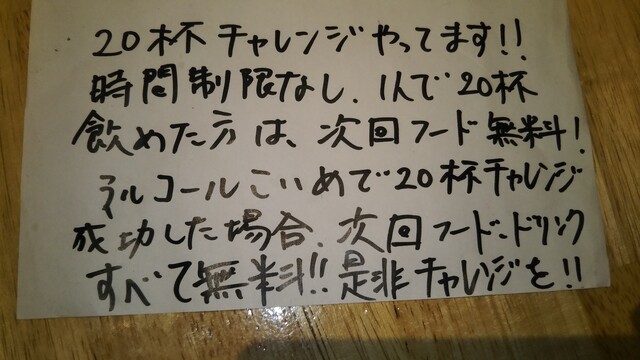 20杯チャレンジやってます!!
時間制限なし、1人で20杯
飲めた方は、次回フード無料!
アルコールこいめで20杯チャレンジ
成功した場合、次回フード・ドリンク
すべて無料!!是非チャレンジを!!